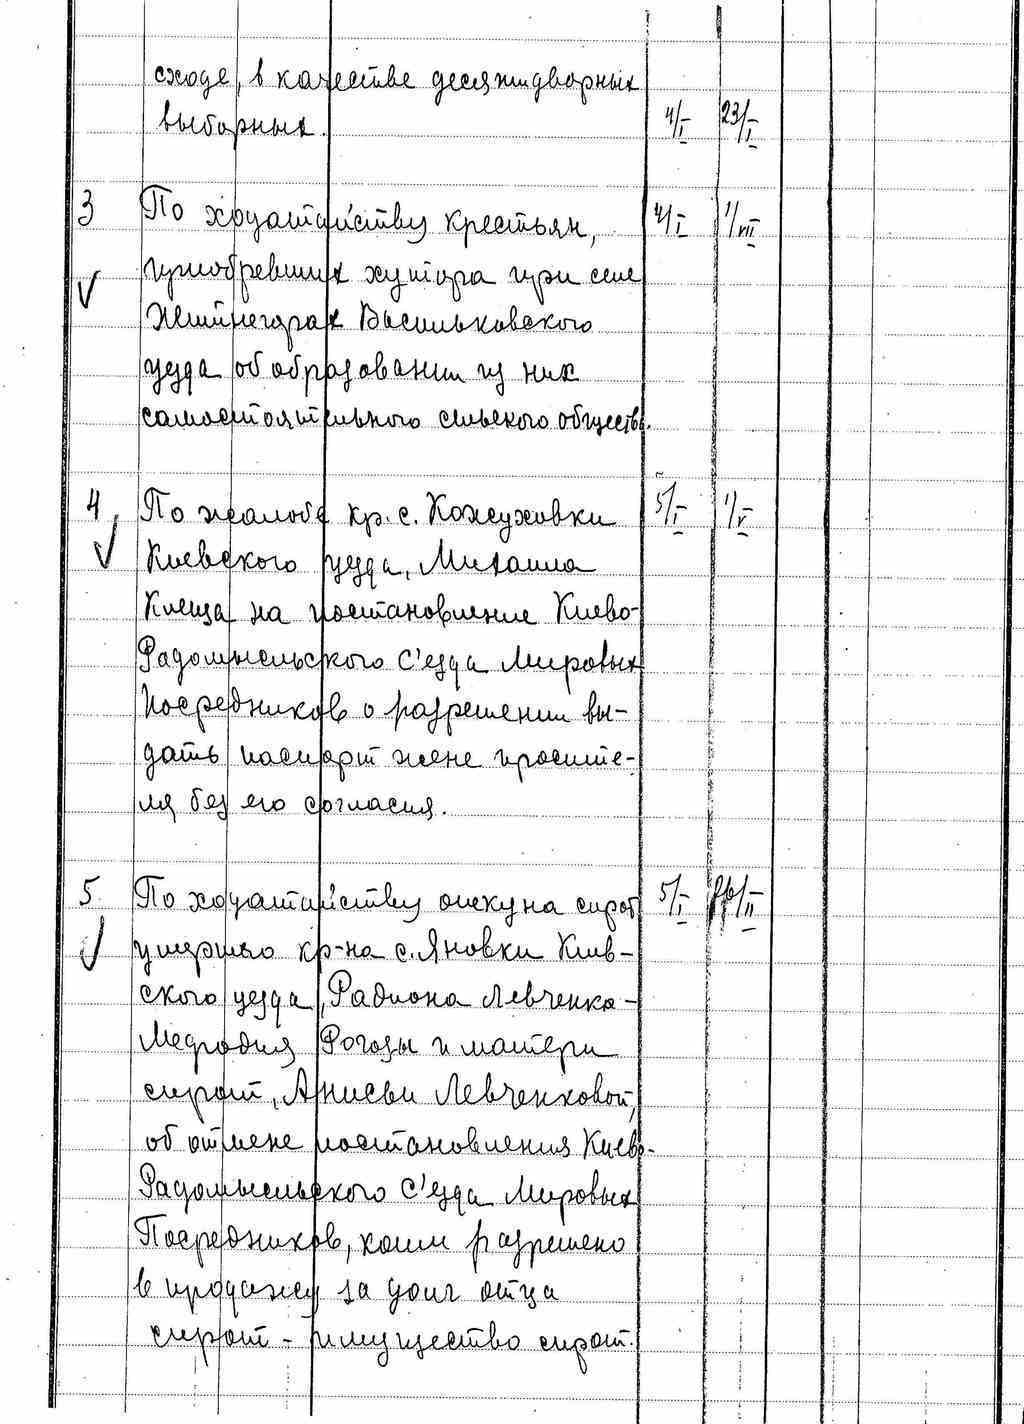 сходе, в качестве десятидворных
выборных. 4/I 23/I
3 По ходатайству крестьян, 4/I 1/VII
приобревших хутора при селе
Васильковского
уезда об образовании из них
самостоятельного сельского общества.
4 По жалобе кр. с. Кожуховки 5/I 1/V
Киевского уезда, Михаила
Клеща на постановление Киево-
Радомысльского с'езда Мировых
Посредников о разрешении вы-
дать паспорт жене просите-
ля без его согласия.
5. По ходатайству опекуна сирот 5/I /II
умершего кр-на с. Яновки Киев-
ского уезда, Радиона Левченка-
Рогозы и матери
сирот, Анисьи Левченковой,
об отмене постановления Киево-
Радомысльского с'езда Мировых
Посредников, коим разрешено
в продажу за долг отца
сирот - имущество сирот.